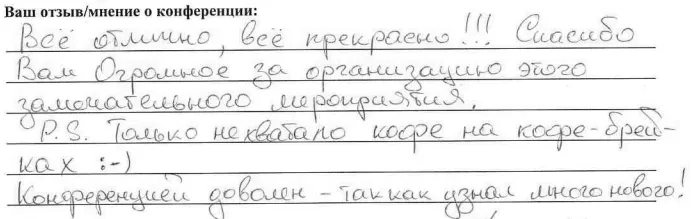 Ваш отзыв/мнение о конференции:
Всё отлично, всё прекрасно!!! Спасибо
Вам Огромное за организацию этого
замечательного мероприятия.
P.S. Только не хватало кофе на кофе-брей-
ках :-)
Конференцией доволен - так как узнал много нового!